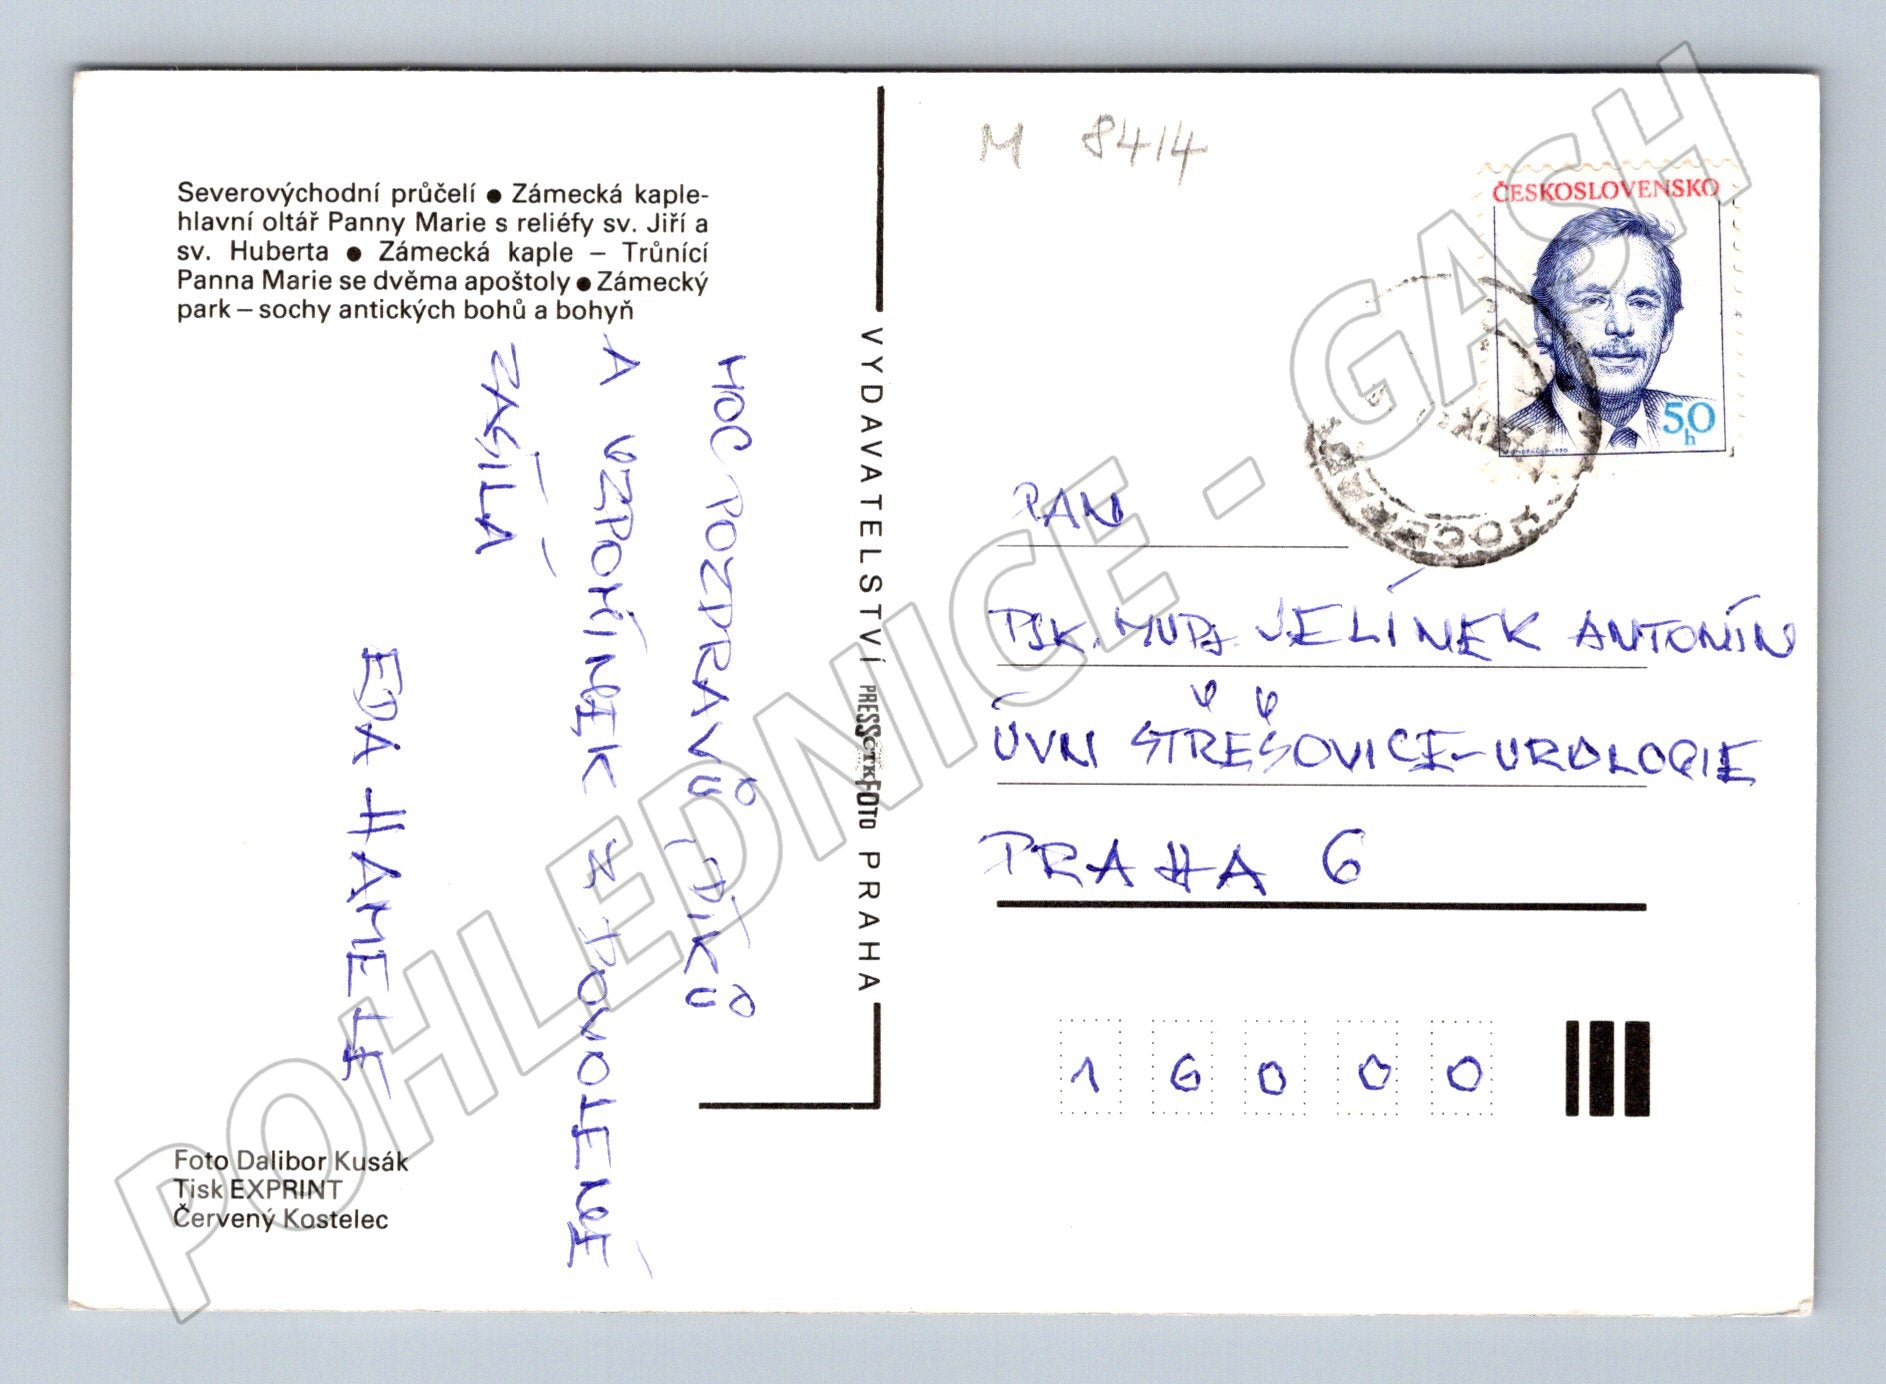 Severovýchodní průčelí ● Zámecká kaple-
hlavní oltář Panny Marie s reliéfy sv. Jiří a
sv. Huberta ● Zámecká kaple – Trůnící
Panna Marie se dvěma apoštoly ● Zámecký
park – sochy antických bohů a bohyň
MOC POZDRAVŮ, DÍKŮ
A VZPOMÍNEK Z DOVOLENÉ
ZASÍLÁ
EDA HAMELE
Foto Dalibor Kusák
Tisk EXPRINT
Červený Kostelec
VYDAVATELSTVÍ PRESSFOTO PRAHA
M 8414
ČESKOSLOVENSKO
50
h
PAN
PLK. MUDr. JELÍNEK ANTONÍN
ÚVN STŘEŠOVICE-UROLOGIE
PRAHA 6
16000
POHLEDNICE - GASH